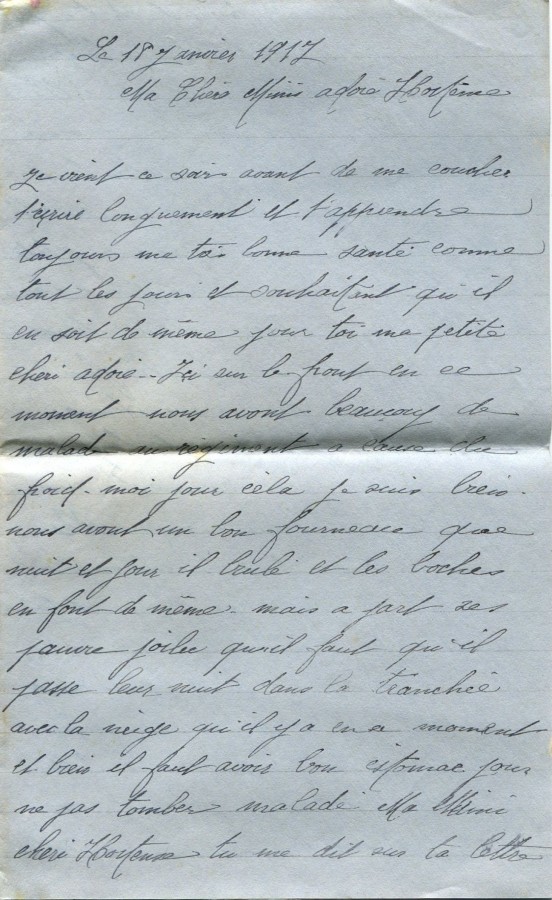 Le 18 Janvier 1917
Ma Chère Mimi adoré Hortense
Je vient ce soir avant de me coucher
t'ecrire longuement et t'apprendre
toujours me tois bonne santé comme
tout les jours et souhaitent qu'il
en soit de même pour toi me petite
cheri adoré -- Ici sur le front en ce
moment nous avont beaucoup de
malade au régiment a cause du
froid - moi pour cela je suis bien -
nous avont un bon fourneau que
nuit et jour il brule et les boches
en font de même - mais a part ses
pauvre poilu qu'il faut qu'il
passe leur nuit dans la tranchée
avec la neige qu'il y a en ce moment
et bien il faut avoir bon estomac pour
ne pas tomber malade Ma Mimi
cheri Hortense tu me dit sur ta lettre